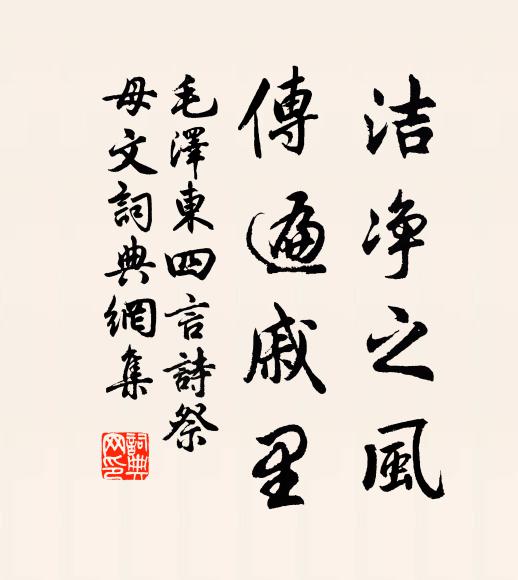 洁净之風
傳遍戚里
毛澤東四言詩祭
母文詞典網集
詞典網印